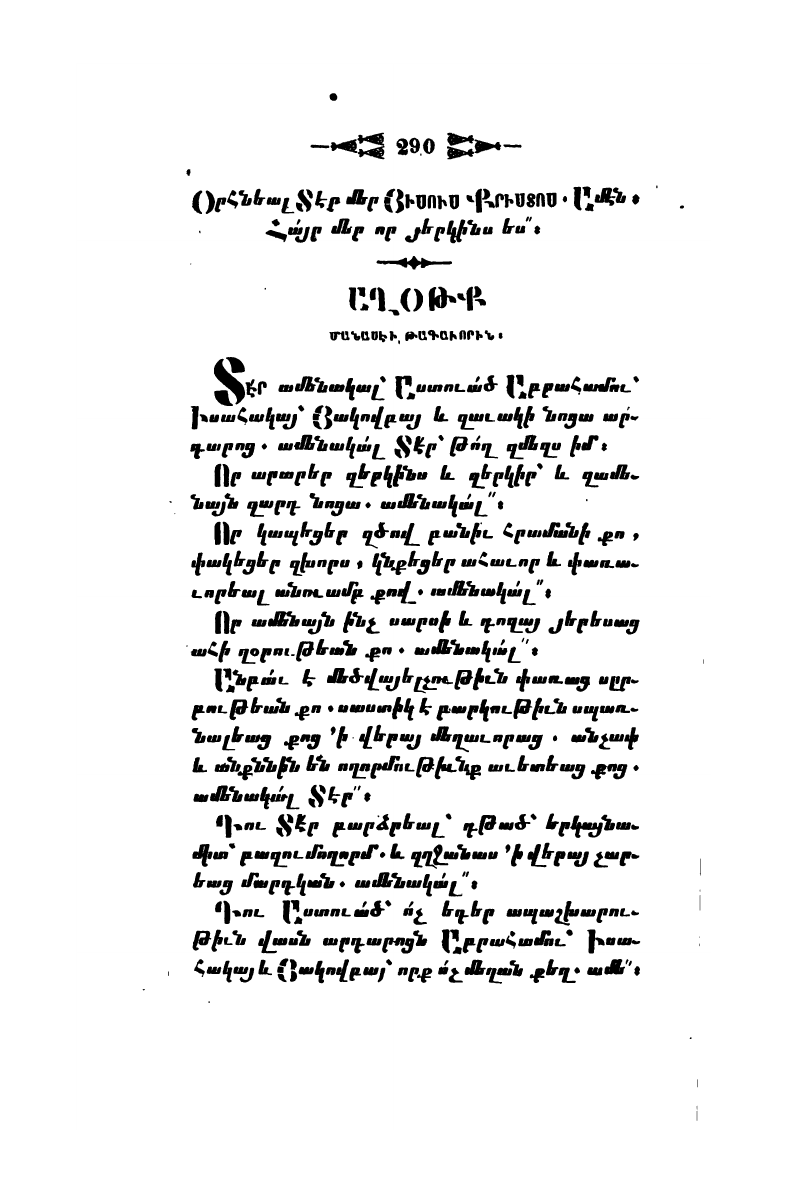 290
Օրհնեալ Տէր մեր ՅԻՍՈՒՍ ՔՐԻՍՏՈՍ. Ամէն։
Հա՛յր մեր որ յերկինս ես՟։
ԱՂՕԹՔ
ՄԱՆԱՍԷԻ ԹԱԳԱՒՈՐԻՆ։
Տէր ամենակալ՝ Աստուած Աբրահամու՝
Իսահակայ՝ Յակովբայ և զաւակի նոցա ար֊
դարոց. ամենակա՛լ Տէր՝ թո՛ղ զմեղս իմ։
Որ արարեր զերկինս և զերկիր՝ և զամե֊
նայն զարդ նոցա. ամենակա՛լ՟։
Որ կապեցեր զծով բանիւ հրամանի քո,
փակեցեր զխորս, կնքեցեր ահաւոր և փառա֊
ւորեալ անուամբ քով. ամենակա՛լ՟։
Որ ամենայն ինչ սարսի և դողայ յերեսաց
ահի զօրութեան քո. ամենակա՛լ՟։
Անբա՛ւ է մեծվայելչութիւն փառաց սըր֊
բութեան քո. սաստիկ է բարկութիւն սպառ֊
նալեաց քոց ՚ի վերայ մեղաւորաց. անչափ
և անքննին են ողորմութիւնք աւետեաց քոց.
ամենակա՛լ Տէր՟։
Դու Տէր բարձրեալ՝ գթած՝ երկայնա֊
միտ՝ բազումողորմ. և զղջանաս ՚ի վերայ չար֊
եաց մարդկան. ամենակա՛լ՟։
Դու Աստուած՝ ո՛չ եդեր ապաշխարու֊
թիւն վասն արդարոցն Աբրահամու՝ Իսա֊
հակայ և Յակովբայ՝ որք ո՛չ մեղան քեզ. ամե՟։